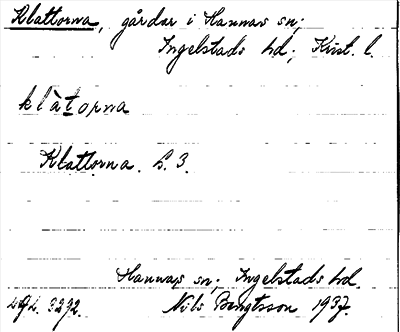 Klattorna, gårdar i Hannas sn;
Ingelstads hd; Krist. l.
klàtorna
Klattorna. S. 3.
Hannas sn; Ingelstads hd.
Nils Bengtsson 1937.
3292.